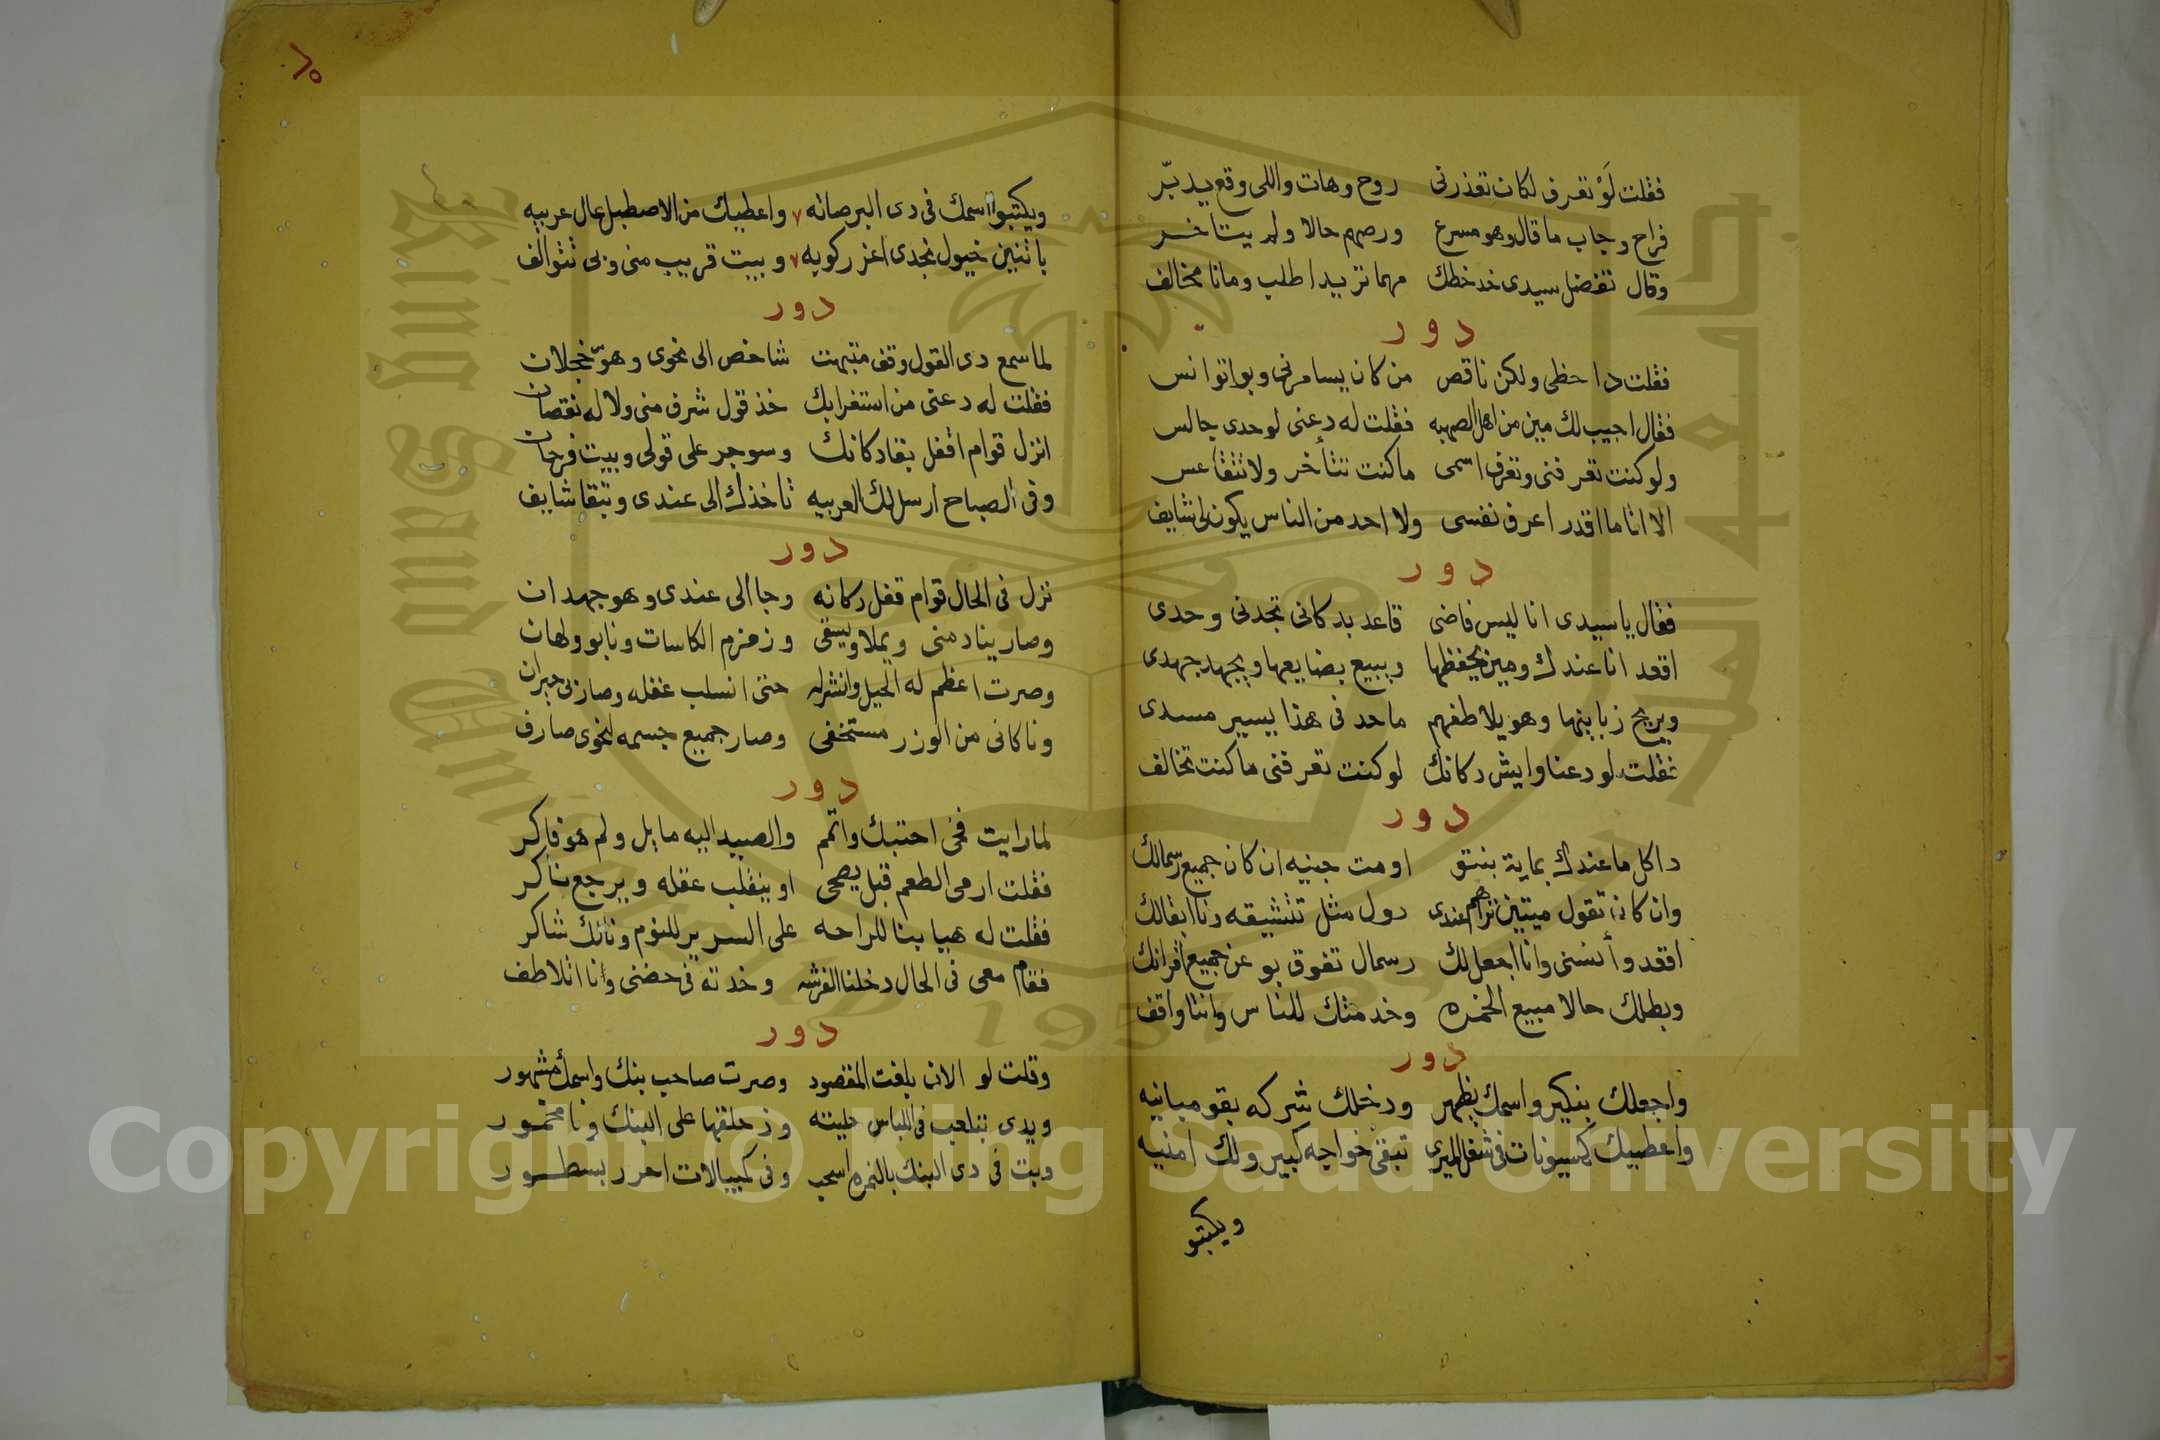 فقلت لَوْ تعرف لكان تعذرنى روح وهات واللى وقع يدبّر
فراح وجاب ما قال وهو مسرع ورصهم حالا ولم يتاخر
وقال تفضل سيدى خد خطك مهما تريد اطلب ومانا مخالف
دور
فقلت دا حظى ولكن ناقص من كان يسامرنى وبو اتوانس
فقال اجيب لك مين من اهل الصهبه فقلت له دعنى لوحدى جالس
ولو كنت تعرفنى وتعرف اسمى ما كنت تتأخر ولا تتقاعس
الا انا ما اقدر اعرف نفسى ولا احد من الناس يكون لى شايف
دور
فقال يا سيدى انا ليس فاضى قاعد بدكانى تجدنى وحدى
اقعد انا عندك ومين يحفظها ويبيع بضايعها ويجهد جهدى
ويريح زبابنها وهو يلاطفهم ما حد فى هذا يسير مسدى
فقلت لو دعنا وايش دكانك لو كنت تعرفنى ما كنت تخالف
دور
دا كل ما عندك بماية بنتو او مت جنيه ان كان جميع رسمالك
وان كان تقول ميتين تراهم عندى دول مثل تنشيقه دنا ابقالك
اقعد وأنسنى وانا اجعل لك رسمال تفوق بو عن جميع اقرانك
وبطلك حالا مبيع الخمره وخدمتك للناس وانتا واقف
دور
واجعلك بنكير واسمك يظهر ودخلك شركه بقومبانيه
واعطيك كسيونات فى شغل الميرى تبقى خواجه كبير ولك امنيه
ويكتبو
٦٥
ويكتبوا اسمك فى دى البرصانه ٧ واعطيك من الاصطبل عال عربيه
باتنين خيول نجدى اعز ركوبه ٧ وبيت قريب منى وبى تتوالف
دور
لما سمع دى القول وقف متبهت شاخص الى نحوى وهوّ خجلان
فقلت له دعنى من استغرابك خد قول شرف منى ولا له نقصان
انزل قوام اقفل بقا دكانك وسوجر على قولى وبيت فرحان
وفى الصباح ارسل لك العربيه تاخذك الى عندى وتبقا شايف
دور
نزل فى الحال قوام قفل دكانه وجا الى عندى وهو جهدان
وصار ينادمنى ويملا ويسقى وزمزم الكاسات ونا بو ولهان
وصرت اعظم له الحيل وانشر له حتى انسلب عقله وصار بى حيران
وناكانى من الوزر مستخفى وصار جميع جسمه لنحوى صارف
دور
لما رايت فخى احتبك واتمم والصيد اليه مايل ولم هو فاكر
فقلت ارمى الطعم قبل يصحى او ينقلب عقله ويرجع ناكر
فقلت له هيا بنا للراحه على السرير للنوم ونا لك شاكر
فقام معى فى الحال دخلنا الفرشه وخدته فى حضنى وانا اتلاطف
دور
وقلت لو الان بلغت المقصود وصرت صاحب بنك واسمك مشهور
ويدى بتلعب فى اللباس حليته وزحلقتها على البنك ونا مخمور
وبت فى دى البنك بالنمره اسحب وفى كمبيالات احرر بسطور